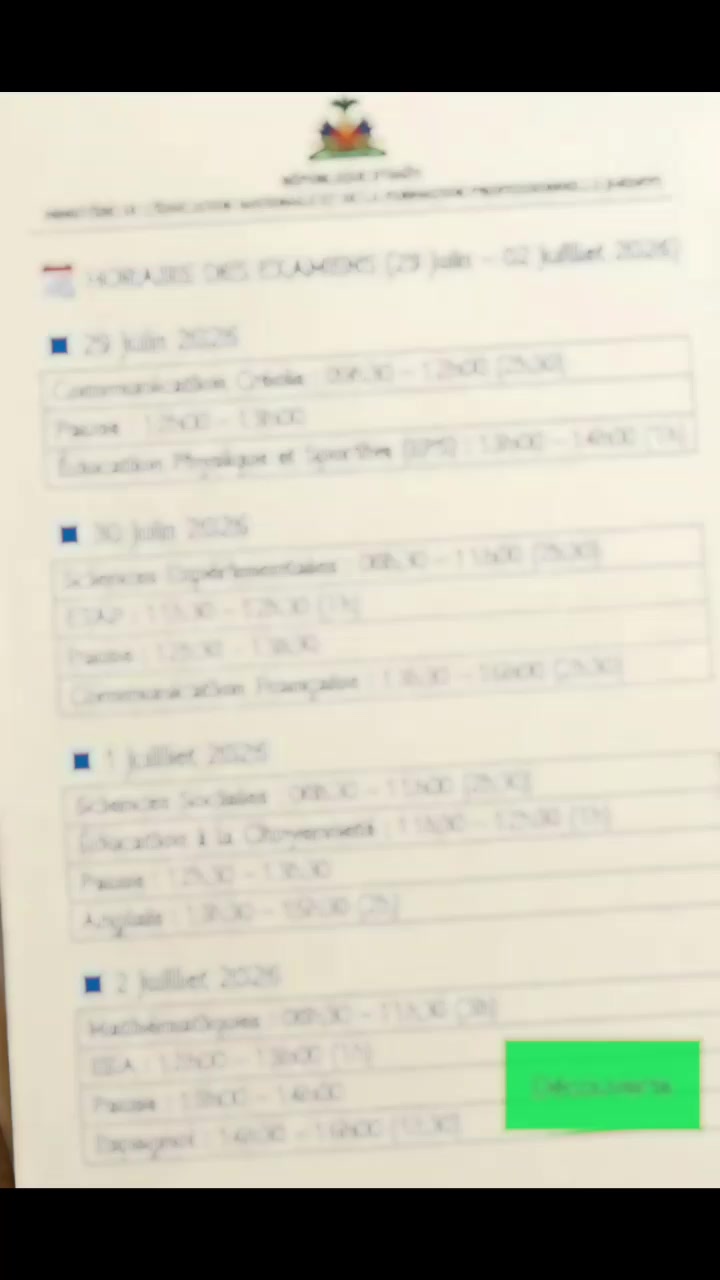 RÉPUBLIQUE D'HAÏTI
MINISTÈRE DE L'ÉDUCATION NATIONALE ET DE LA FORMATION PROFESSIONNELLE
HORAIRE DES EXAMENS (29 Juin – 02 Juillet 2026)
29 Juin 2026
Communication Créole : 09h30 – 12h00 (2h30)
Pause : 12h00 – 13h00
Éducation Physique et Sportive (EPS) : 13h00 – 14h00 (1h)
30 Juin 2026
Sciences Expérimentales : – 11h00 (2h30)
ETAP : 11h30 – 12h30 (1h)
Pause : 12h30 – 13h30
Communication Française : 13h30 – 16h00 (2h30)
1 Juillet 2026
Sciences Sociales : – 11h00 (2h30)
Éducation à la Citoyenneté : – 12h30 (1h)
Pause : 12h30 – 13h30
Anglais : 13h30 – 15h30 (2h)
2 Juillet 2026
Mathématiques : – 11h30 (3h)
: 12h00 – 13h00 (1h)
Pause : 13h00 – 14h00
Espagnol : – 16h00 (1h30)